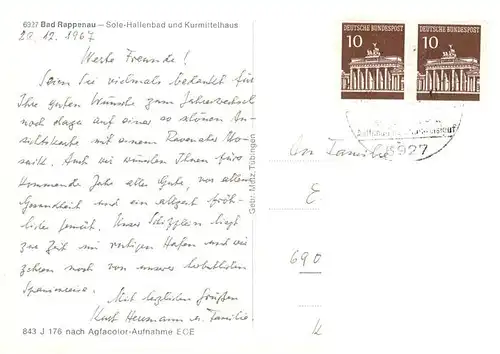 6927 Bad Rappenau — Sole-Hallenbad und Kurmittelhaus
28.12.1967
Werte Freunde!
Seien Sie vielmals bedankt für
Ihre guten Wünsche zum Jahreswechsel
noch dazu auf einer so schönen An-
sichtskarte mit einem Ravenater Mo-
saik. Auch wir wünschen Ihnen fürs
kommende Jahr alles Gute, vor allem
Gesundheit und ein allzeit fröh-
liches Gemüt. Unser Schifflein liegt
zur Zeit im ruhigen Hafen und wir
zehren noch von unserer herbstlichen
Spanienreise.
Mit herzlichen Grüßen
Kurt Hermann u. Familie.
843 J 176 nach Agfacolor-Aufnahme ECE
Gebr. Metz, Tübingen
10
10
6927
An Familie
E
690
K